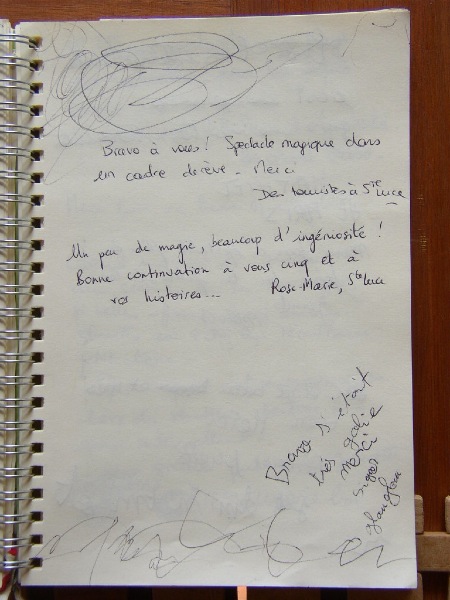 Bravo à vous ! Spectacle magique dans
un cadre de rêve. Merci
Des touristes à Ste Luce
Un peu de magie, beaucoup d'ingéniosité !
Bonne continuation à vous cinq et à
vos histoires...
Rose-Marie, Ste Luce
Bravo s'était
très joli
merci